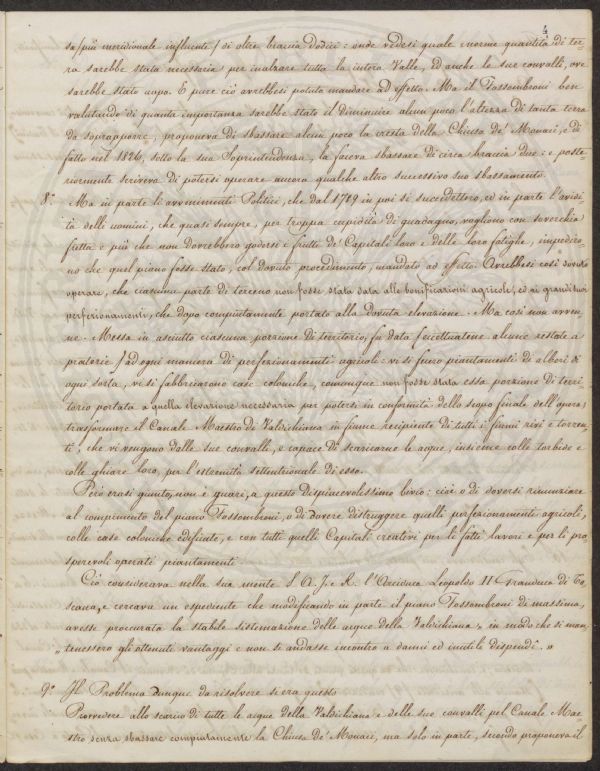 4
sa/più meridionale influente/ di altre braccia dodici: onde vedesi quale enorme quantità di ter-
ra sarebbe stata necessaria per inalzare tutta la intera Valle, ed anche le sue convalli, ove
sarebbe stato uopo. E pure ciò avrebbesi potuto mandare ad effetto. Ma il Fossombroni ben
valutando di quanta importanza sarebbe stato il diminuire alcun poco l'altezza di tanta terra
da soprapporre, proponeva di sbassare alcun poco la cresta della Chiusa de' Monaci, e di
fatto nel 1826, sotto la sua Soprintendenza, la faceva sbassare di circa braccia due: e poste-
riormente scriveva di potersi operare ancora qualche altro successivo suo sbassamento.
8.° Ma in parte li avvenimenti Politici, che dal 1789 in poi si succedettero, ed in parte l'avidi-
tà delli uomini, che quasi sempre, per troppa cupidità di guadagno, vogliono con soverchia
fretta e più che non dovrebbero godersi i frutti de' Capitali loro e delle loro fatighe, impediro-
no che quel piano fosse stato, col dovuto procedimento, mandato ad effetto. Avrebbesi così dovuto
operare, che ciascuna parte di terreno non fosse stata data alle bonificazioni agricole, ed ai grandi suoi
perfezionamenti, che dopo compiutamente portato alla dovuta elevazione. Ma così non avven-
ne. Messa in asciutto ciascuna porzione di territorio, fu data /eccettuatene alcune restate a
praterie/ ad ogni maniera di perfezionamenti agricoli: vi si fecero piantamenti di alberi di
ogni sorta, vi si fabbricarono case coloniche, comunque non fosse stata essa porzione di terri-
torio portata a quella elevazione necessaria per potersi in conformità dello scopo finale dell'opera,
trasformare il Canale Maestro di Valdichiana in fiume recipiente di tutti i fiumi rivi e torren-
ti, che vi vengono dalle sue convalli, e capace di scaricarne le acque, insieme colle torbide e
colle ghiare loro, per l'estremità settentrionale di esso.
Però erasi giunto, non è guari, a questo dispiacevolissimo bivio: cioè o di doversi rinunziare
al compimento del piano Fossombroni, o di dovere distruggere quelli perfezionamenti agricoli,
colle case coloniche edificate, e con tutti quelli Capitali creativi per li fatti lavori e per li pro-
sperevoli operati piantamenti.
Ciò considerava nella sua mente S. A. I. e R. l'Arciduca Leopoldo II Granduca di To-
scana, e cercava un espediente che modificando in parte il piano Fossombroni di massima,
avesse procurata la stabile sistemazione delle acque della Valdichiana „ in modo che si man-
„ tenessero gli ottenuti vantaggi e non si andasse incontro a danni ed inutili dispendî. „
9.° Il Problema dunque da risolvere si era questo
Provvedere allo scarico di tutte le acque della Valdichiana e delle sue convalli pel Canale Mae-
stro senza sbassare compiutamente la Chiusa de' Monaci, ma solo in parte, secondo proponeva il